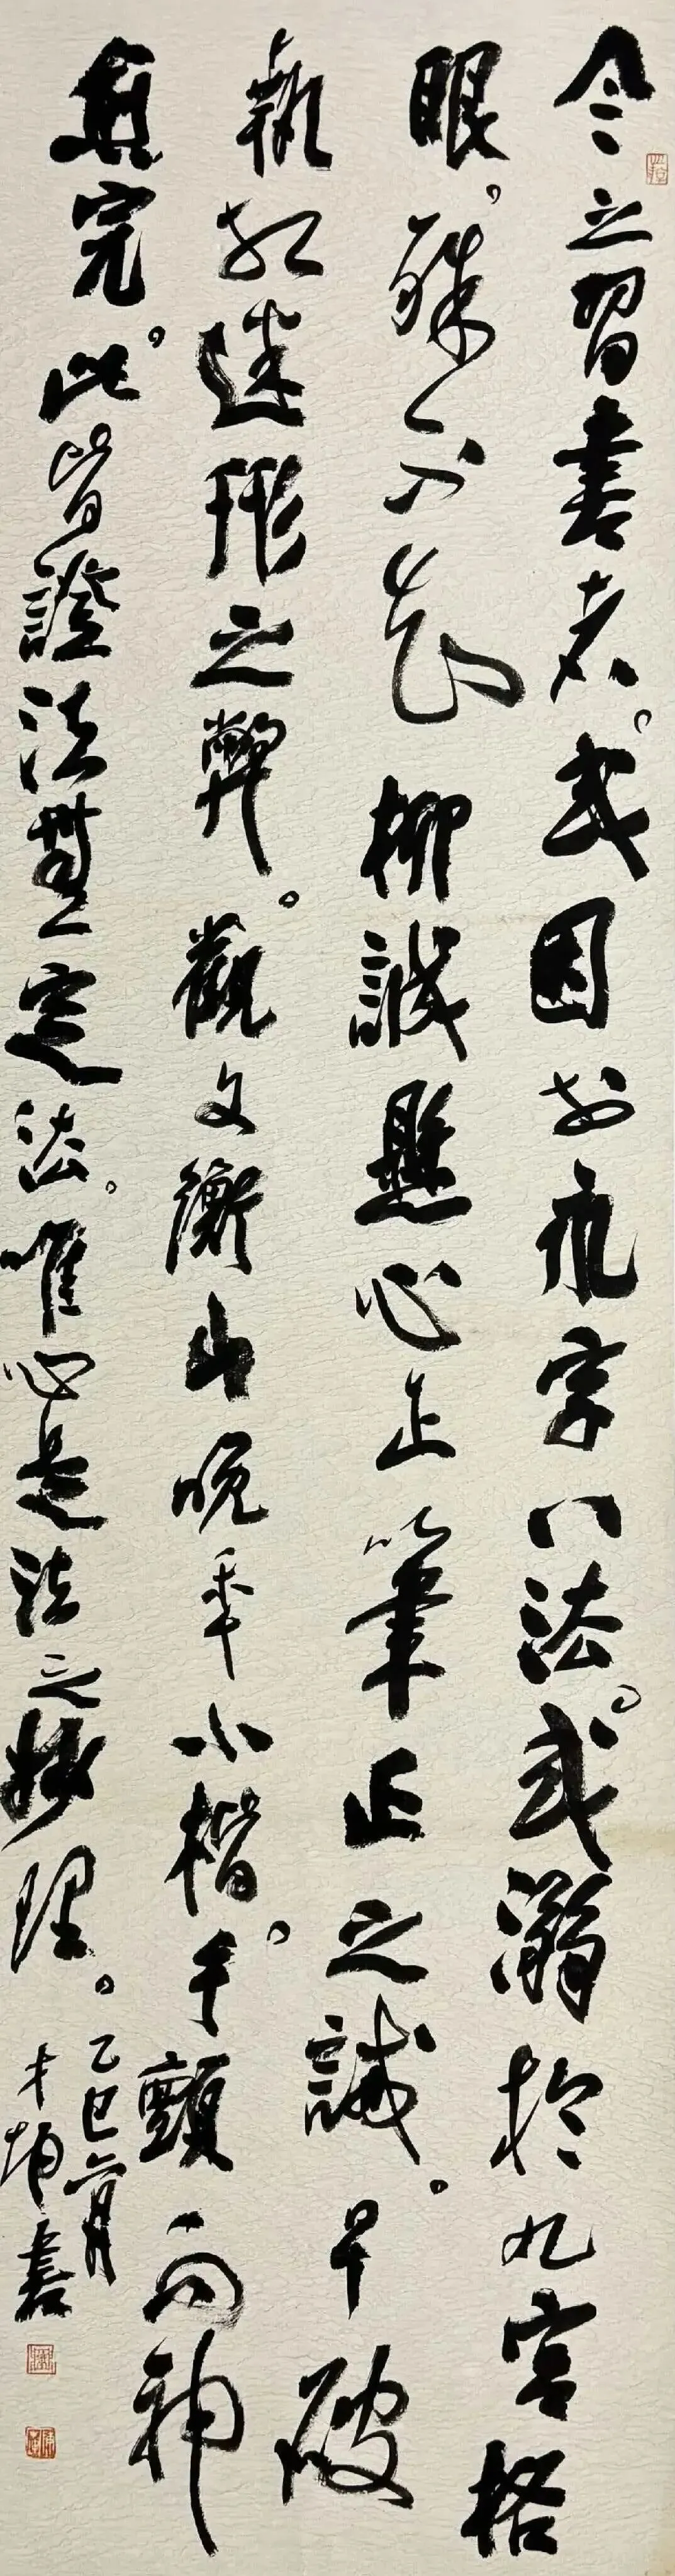 今之習書者。或囿於永字八法。或溺於九宮格
眼。殊不知柳誠懸心正筆正之誡。早破
執相迷形之弊。觀文衡山晚年小楷。手顫而神
愈完。此皆證法無定法。唯心是法之妙理。
乙巳六月
才坤書